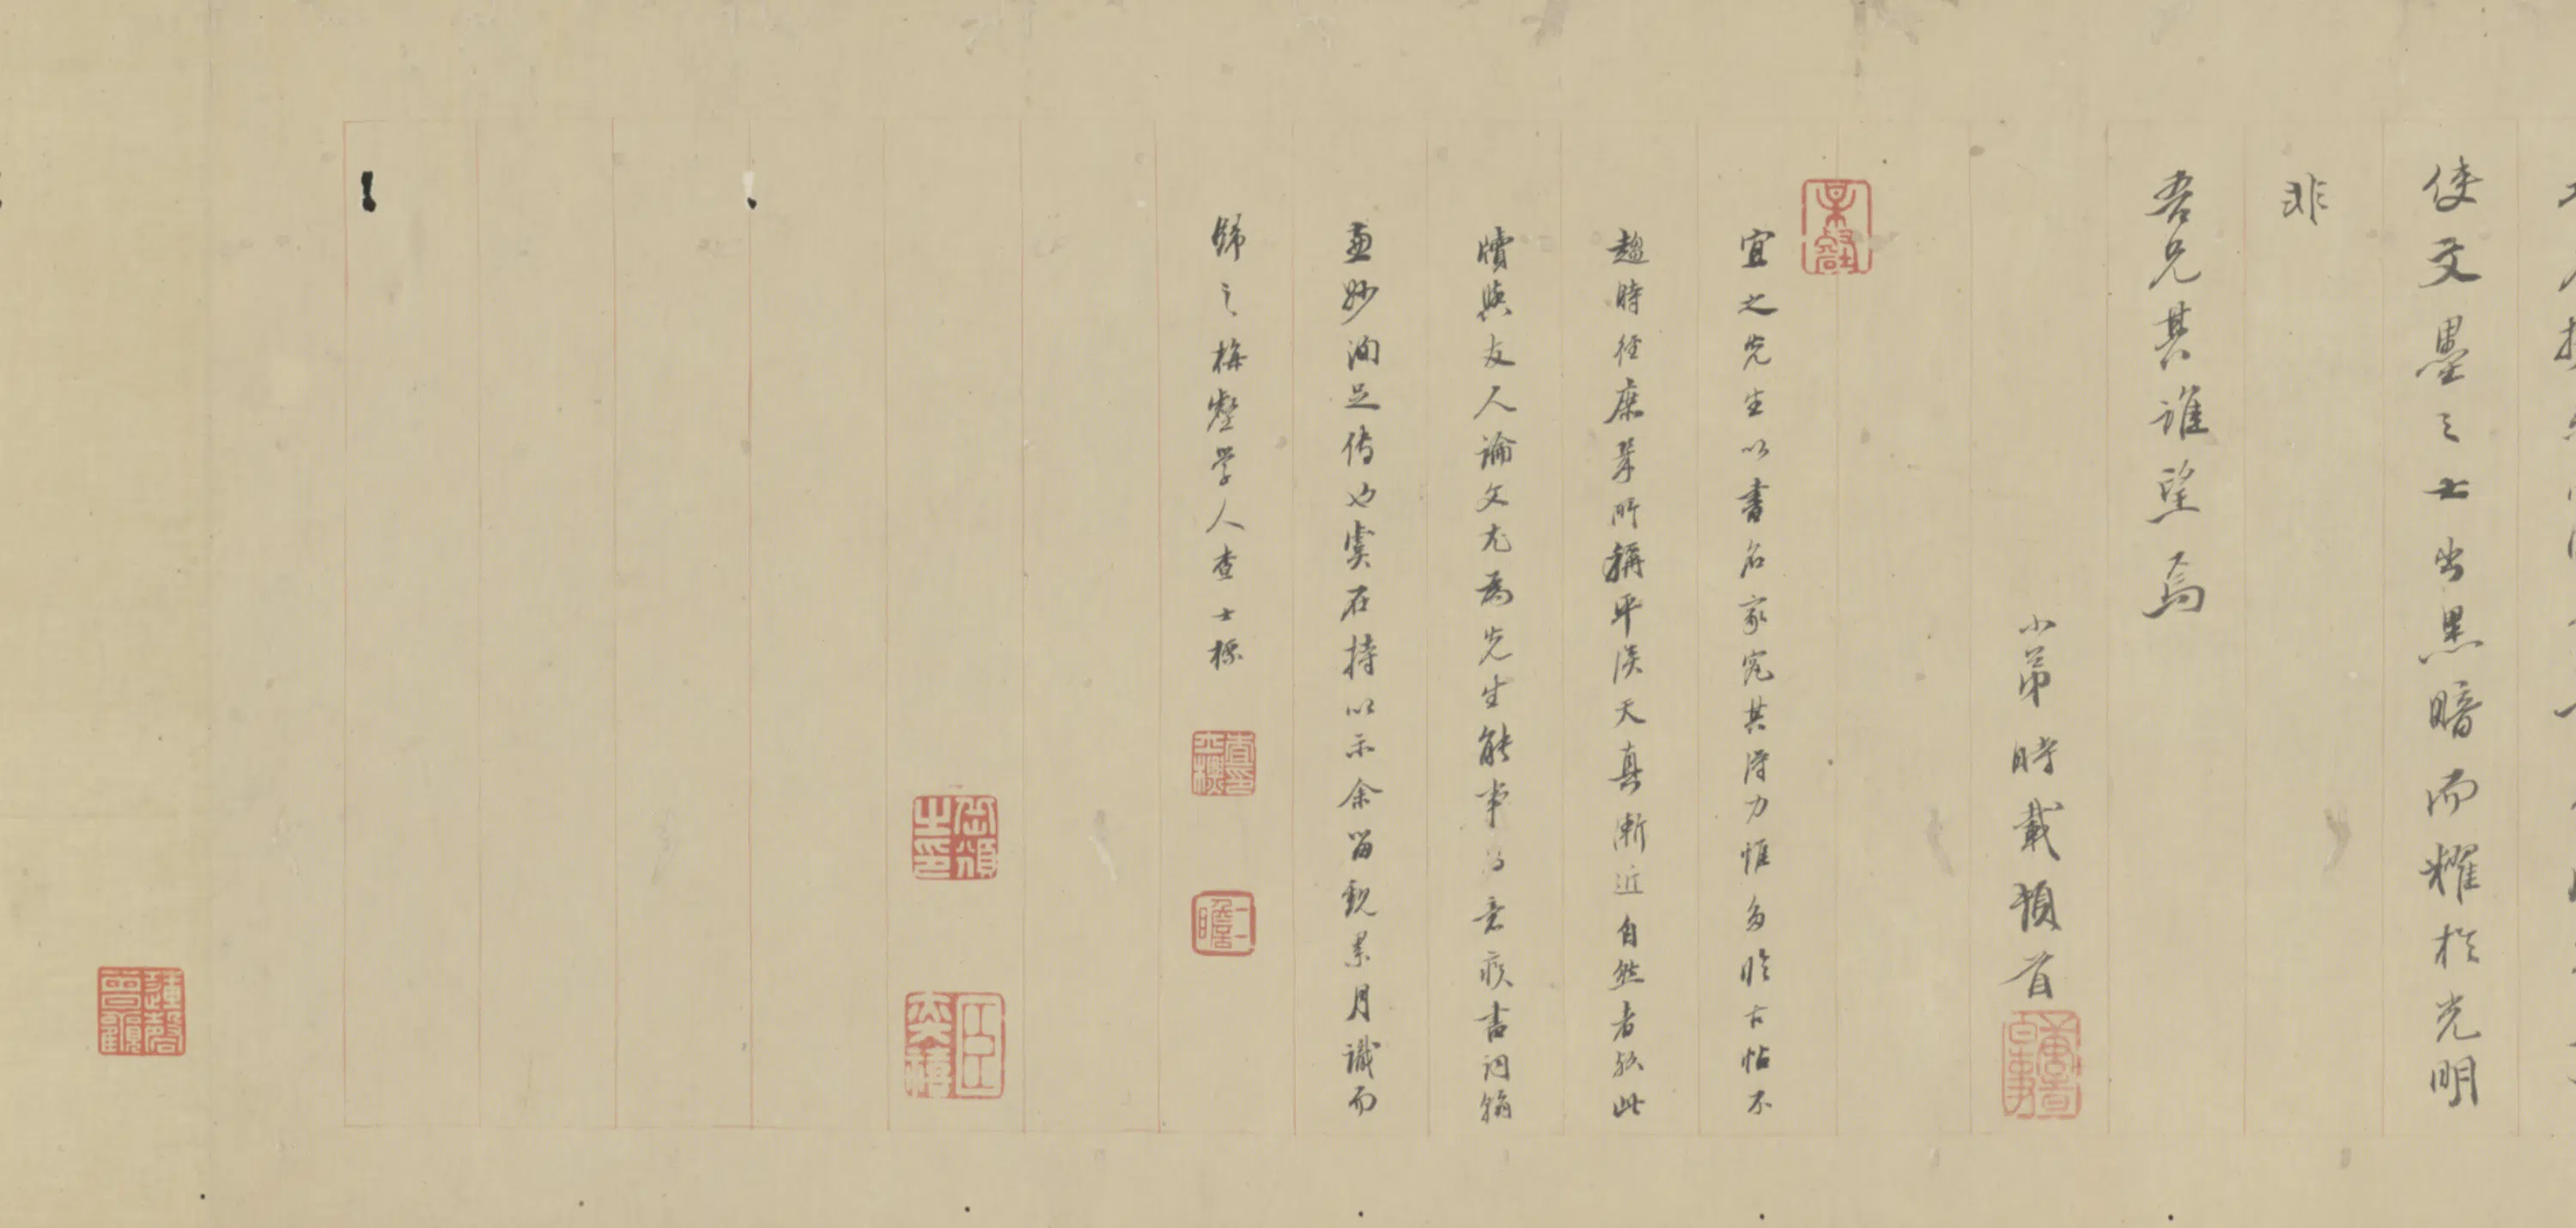 使文墨之士出黑暗而耀於光明
非
吾兄其誰望焉
小弟時載頓首
宜之先生以書名家究其得力惟多臨古帖不
趨時徑康峯所稱平淡天真漸近自然者矧此
牘與友人論文尤為先生能事得意疾書詞翰
兼妙洵足傳也虞在持以示余留翫累月識而
歸之梅壑學人查士標